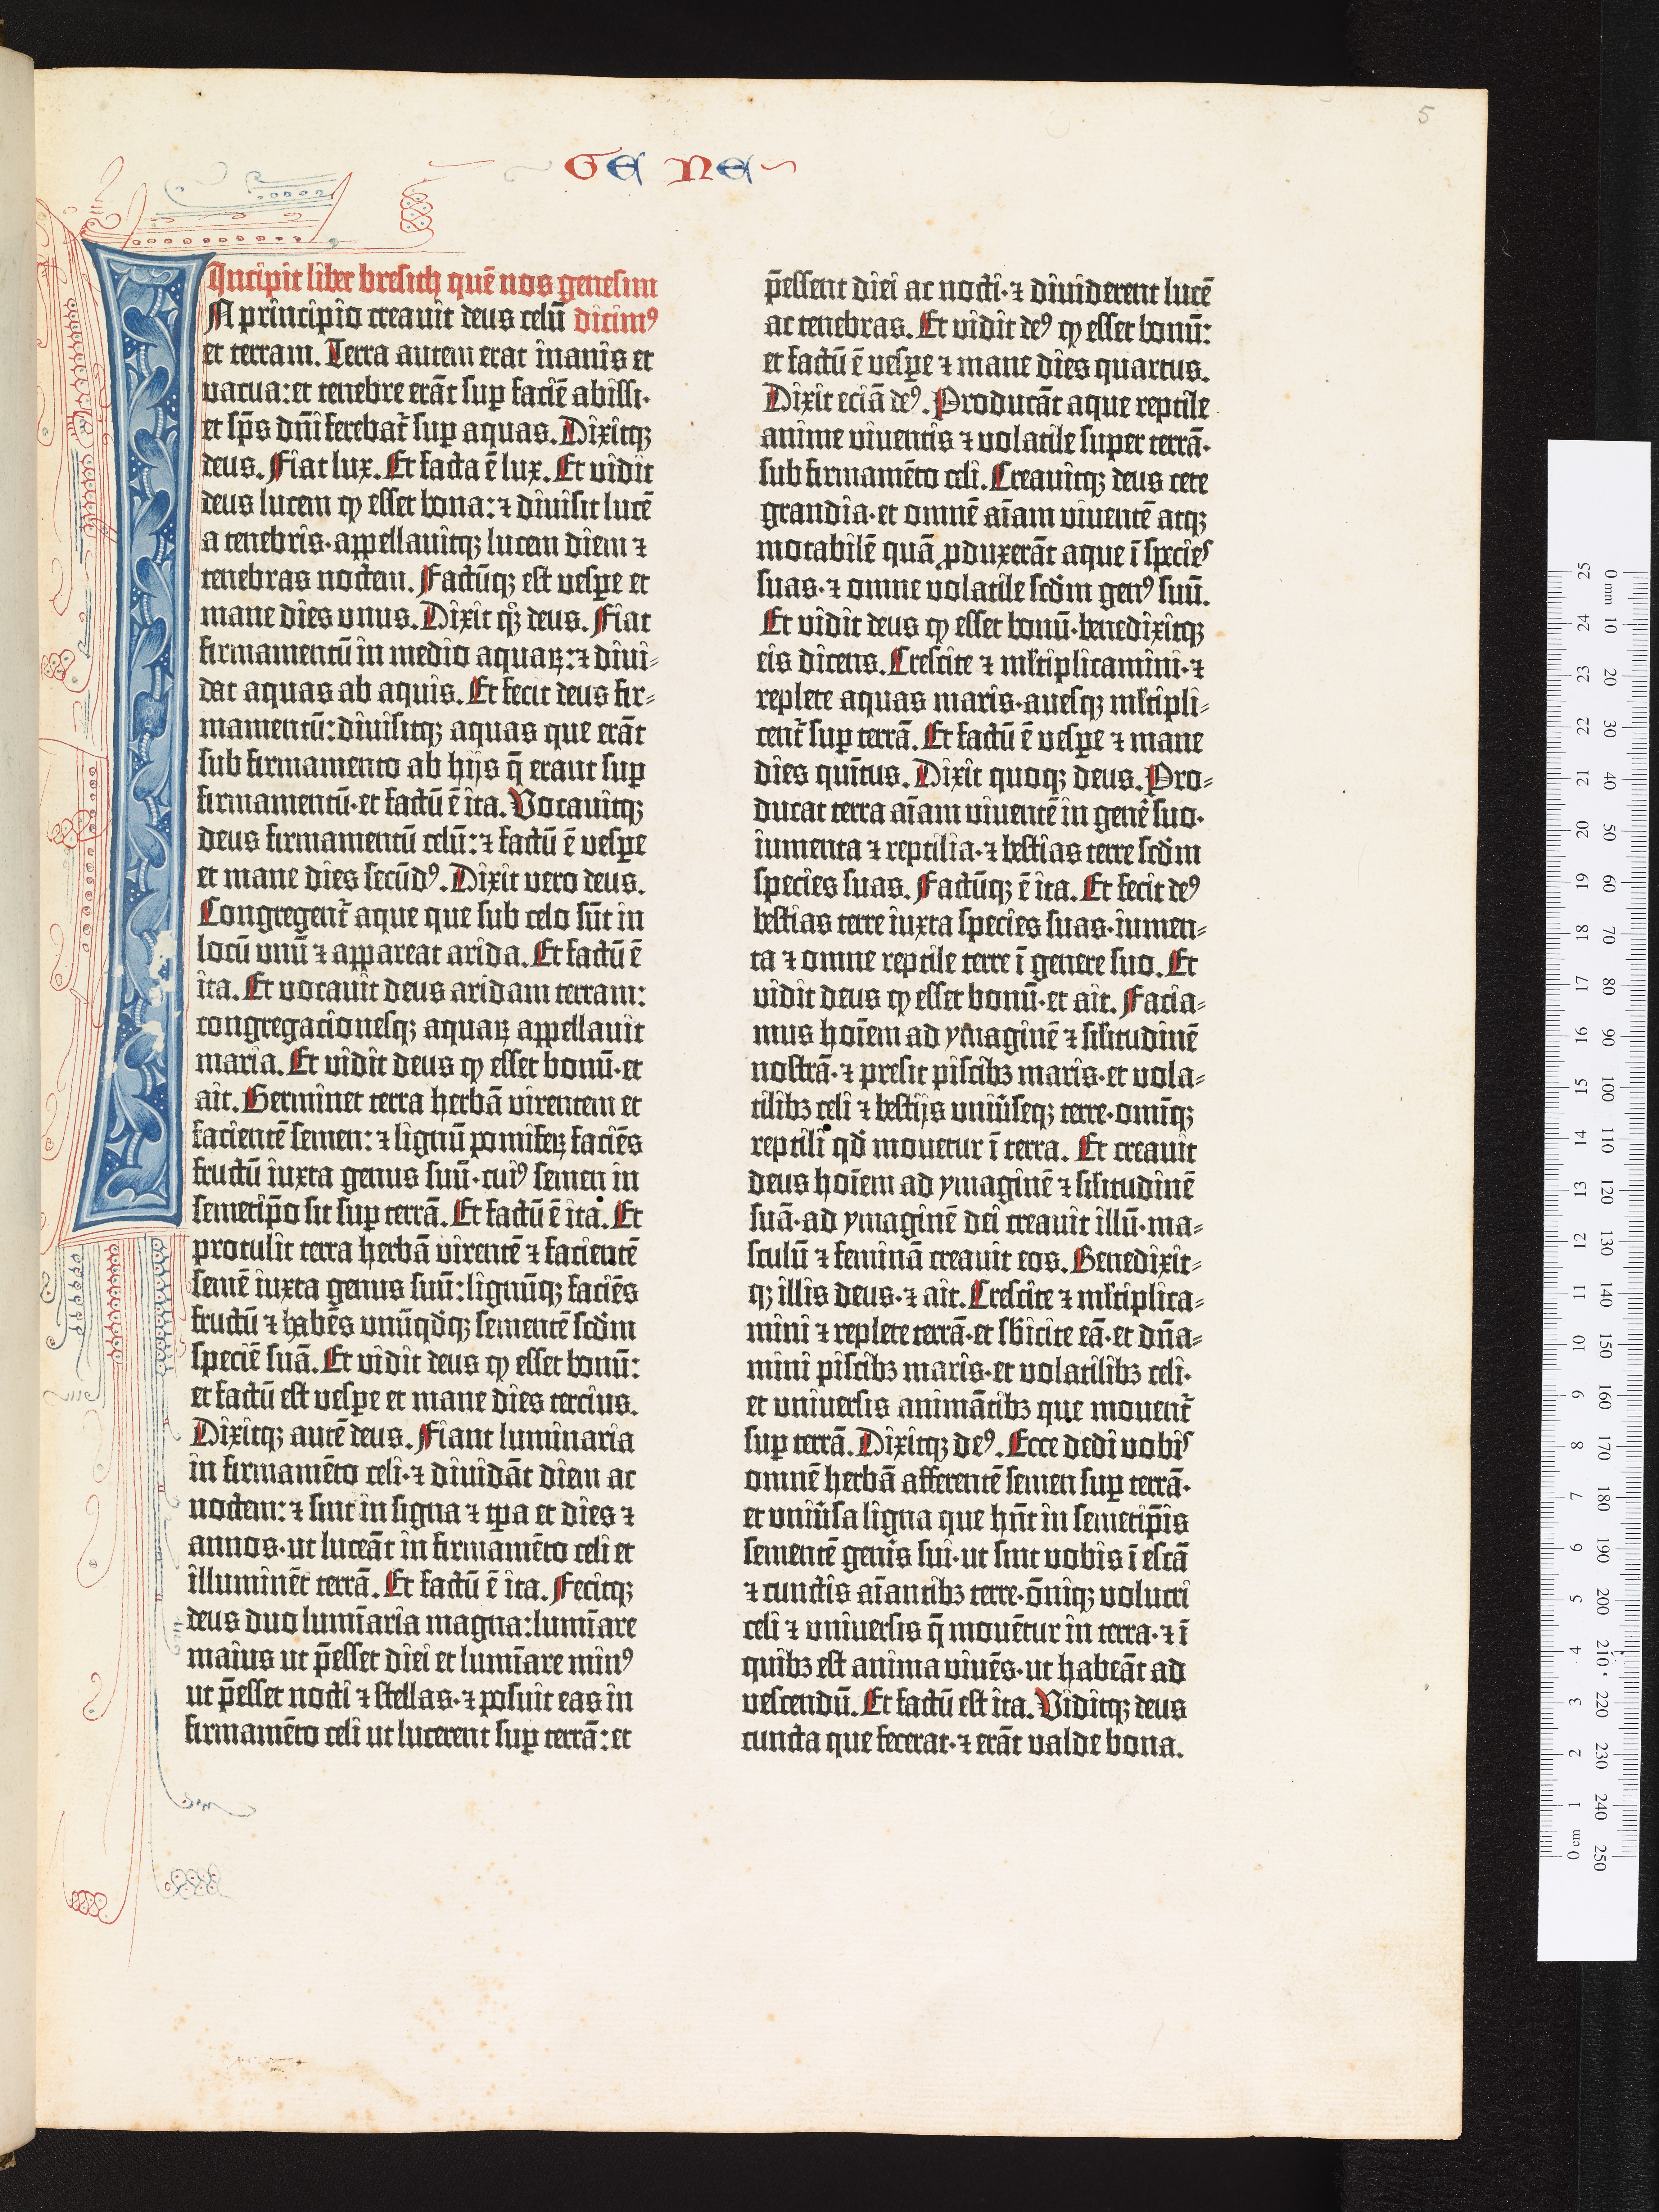 5
GE NE
Incipit liber bresith quē nos genesim
N principio creauit deus celū dicimꝰ
et terram. Terra autem erat inanis et
vacua: et tenebre erāt sup faciē abissi·
et sp̄s dn̄i ferebat᷑ sup aquas. Dixitqꝫ
deus. Fiat lux. Et facta ē lux. Et vidit
deus lucem ꝙ esset bona: ⁊ diuisit lucē
a tenebris· appellauitqꝫ lucem diem ⁊
tenebras noctem. Factūqꝫ est vespe et
mane dies vnus. Dixit qͦꝫ deus. Fiat
firmamentū in medio aquaꝝ: ⁊ diui-
dat aquas ab aquis. Et fecit deus fir-
mamentū: diuisitqꝫ aquas que erāt
sub firmamento ab hijs q̄ erant sup
firmamentū· et factū ē ita. Vocauitqꝫ
deus firmamentū celū: ⁊ factū ē vespe
et mane dies secūdꝰ. Dixit vero deus.
Congregent᷑ aque que sub celo sūt in
locū vnū ⁊ appareat arida. Et factū ē
ita. Et vocauit deus aridam terram:
congregacionesqꝫ aquaꝝ appellauit
maria. Et vidit deus ꝙ esset bonū· et
ait. Germinet terra herbā virentem et
facientē semen: ⁊ lignū pomifeꝝ faciēs
fructū iuxta genus suū· cuiꝰ semen in
semetip̄o sit sup terrā. Et factū ē ita. Et
protulit terra herbā virentē ⁊ facientē
semē iuxta genus suū: lignūqꝫ faciēs
fructū ⁊ habēs vnūqd̛qꝫ sementē scd̛m
speciē suā. Et vidit deus ꝙ esset bonū:
et factū est vespe et mane dies tercius.
Dixitqꝫ autē deus. Fiant luminaria
in firmamēto celi· ⁊ diuidāt diem ac
noctem: ⁊ sint in signa ⁊ tp̄a et dies ⁊
annos· ut luceāt in firmamēto celi et
illuminēt terrā. Et factū ē ita. Fecitqꝫ
deus duo lumīaria magna: lumīare
maius ut p̄esset diei et lumīare minꝰ
ut p̄esset nocti ⁊ stellas· ⁊ posuit eas in
firmamēto celi ut lucerent sup terrā: et
p̄essent diei ac nocti· ⁊ diuiderent lucē
ac tenebras. Et vidit deꝰ ꝙ esset bonū:
et factū ē vespe ⁊ mane dies quartus.
Dixit eciā deꝰ. Producāt aque reptile
anime viuentis ⁊ volatile super terrā·
sub firmamēto celi. Creauitqꝫ deus cete
grandia· et omnē aīam viuentē atqꝫ
motabilē quā ꝓduxerāt aque ī species
suas· ⁊ omne volatile scd̛m genꝰ suū.
Et vidit deus ꝙ esset bonū· benedixitqꝫ
eis dicens. Crescite ⁊ ml̛tiplicamini· ⁊
replete aquas maris· auesqꝫ ml̛tipli-
cent᷑ sup terrā. Et factū ē vespe ⁊ mane
dies quītus. Dixit quoqꝫ deus. Pro-
ducat terra aīam viuentē in gene᷑ suo·
iumenta ⁊ reptilia· ⁊ bestias terre scd̛m
species suas. Factūqꝫ ē ita. Et fecit deꝰ
bestias terre iuxta species suas· iumen-
ta ⁊ omne reptile terre ī genere suo. Et
vidit deus ꝙ esset bonū· et ait. Facia-
mus hoīem ad ymaginē ⁊ sil̛itudinē
nostrā· ⁊ presit piscibꝫ maris· et vola-
tilibꝫ celi ⁊ bestijs vniūseqꝫ terre· omīqꝫ
reptili qd̛ mouetur ī terra. Et creauit
deus hoīem ad ymaginē ⁊ sil̛itudinē
suā· ad ymaginē dei creauit illū· ma-
sculū ⁊ feminā creauit eos. Benedixit-
qꝫ illis deus· ⁊ ait. Crescite ⁊ ml̛tiplica-
mini ⁊ replete terrā· et sb̛icite eā· et dn̄a-
mini piscibꝫ maris· et volatilibꝫ celi·
et vniuersis animātibꝫ que mouent᷑
sup terrā. Dixitqꝫ deꝰ. Ecce dedi vobis
omnē herbā afferentē semen sup terrā·
et vniūsa ligna que hn̄t in semetip̄is
sementē genīs sui· ut sint vobis ī escā
⁊ cunctis aīantibꝫ terre· ōniqꝫ volucri
celi ⁊ vniuersis q̄ mouētur in terra· ⁊ ī
quibꝫ est anima viuēs· ut habeāt ad
vescendū. Et factū est ita. Viditqꝫ deus
cuncta que fecerat· ⁊ erāt valde bona.
0 mm 10 20 30 40 50 60 70 80 90 100 110 120 130 140 150 160 170 180 190 200 210 220 230 240 250
25 24 23 22 21 20 19 18 17 16 15 14 13 12 11 10 9 8 7 6 5 4 3 2 1 0 cm